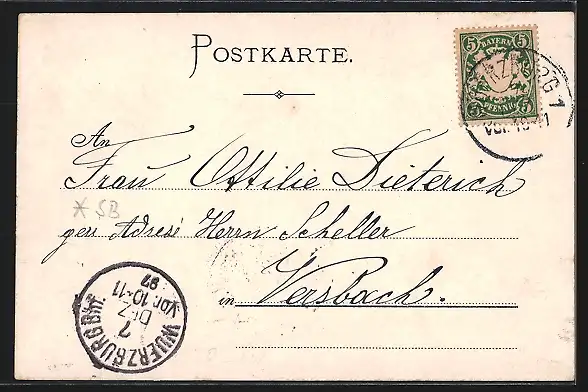 POSTKARTE.
5 BAYERN 5
5 PFENNIG 5
RZBURG 1
Vor. 10-11
An
Frau Ottilie Dieterich
* SB
geri Adresse Herrn Scheller
in Versbach.
WUERZBURG Bhf.
7
DEZ
Vor. 10-11
97